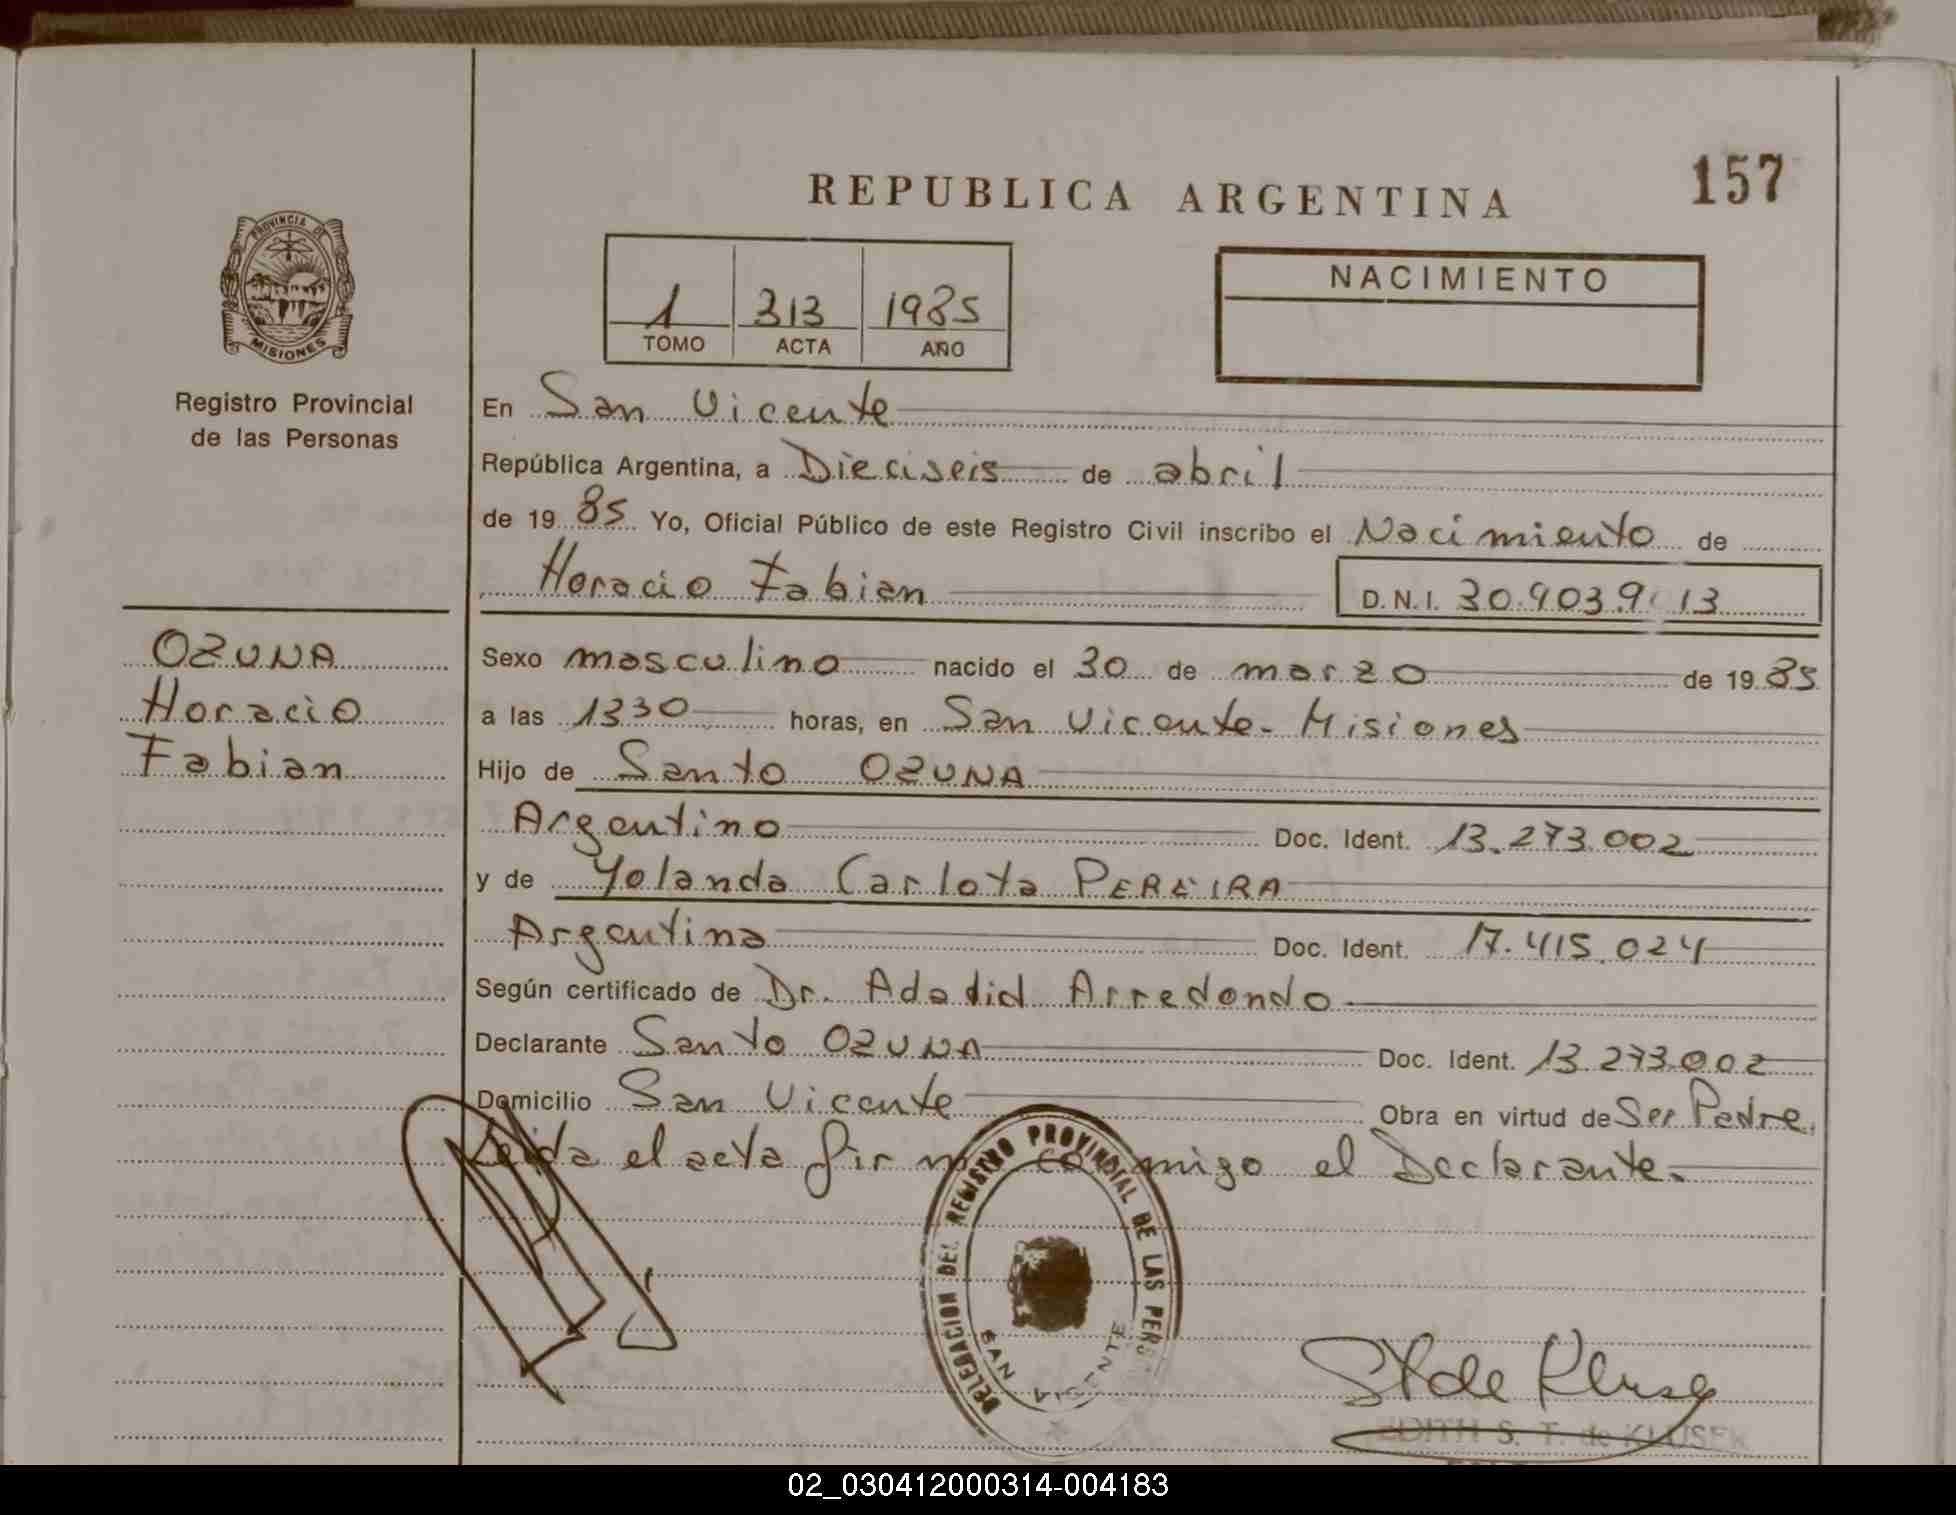 157
REPUBLICA ARGENTINA
PROVINCIA DE
MISIONES
Registro Provincial
de las Personas
1 313 1985
TOMO ACTA AÑO
NACIMIENTO
En San Vicente
República Argentina, a Dieciseis de abril
de 19 85 Yo, Oficial Público de este Registro Civil inscribo el Nacimiento de
Horacio Fabian D.N.I. 30.903.9 13
OZUNA
Horacio
Fabian
Sexo masculino nacido el 30 de marzo de 19 85
a las 1330 horas, en San Vicente - Misiones
Hijo de Santo OZUNA
Argentino Doc. Ident. 13.273.002
y de Yolanda Carlota PEREIRA
Argentina Doc. Ident. 17.415.024
Según certificado de Dr. Adadid Arredondo
Declarante Santo OZUNA Doc. Ident. 13.273.002
Domicilio San Vicente Obra en virtud de Ser Padre.
Leida el acta firma conmigo el Declarante.
DELEGACION DEL REGISTRO PROVINCIAL DE LAS PERS
SAN VICENTE
EDITH S. T. de KLUSEK
02_030412000314-004183